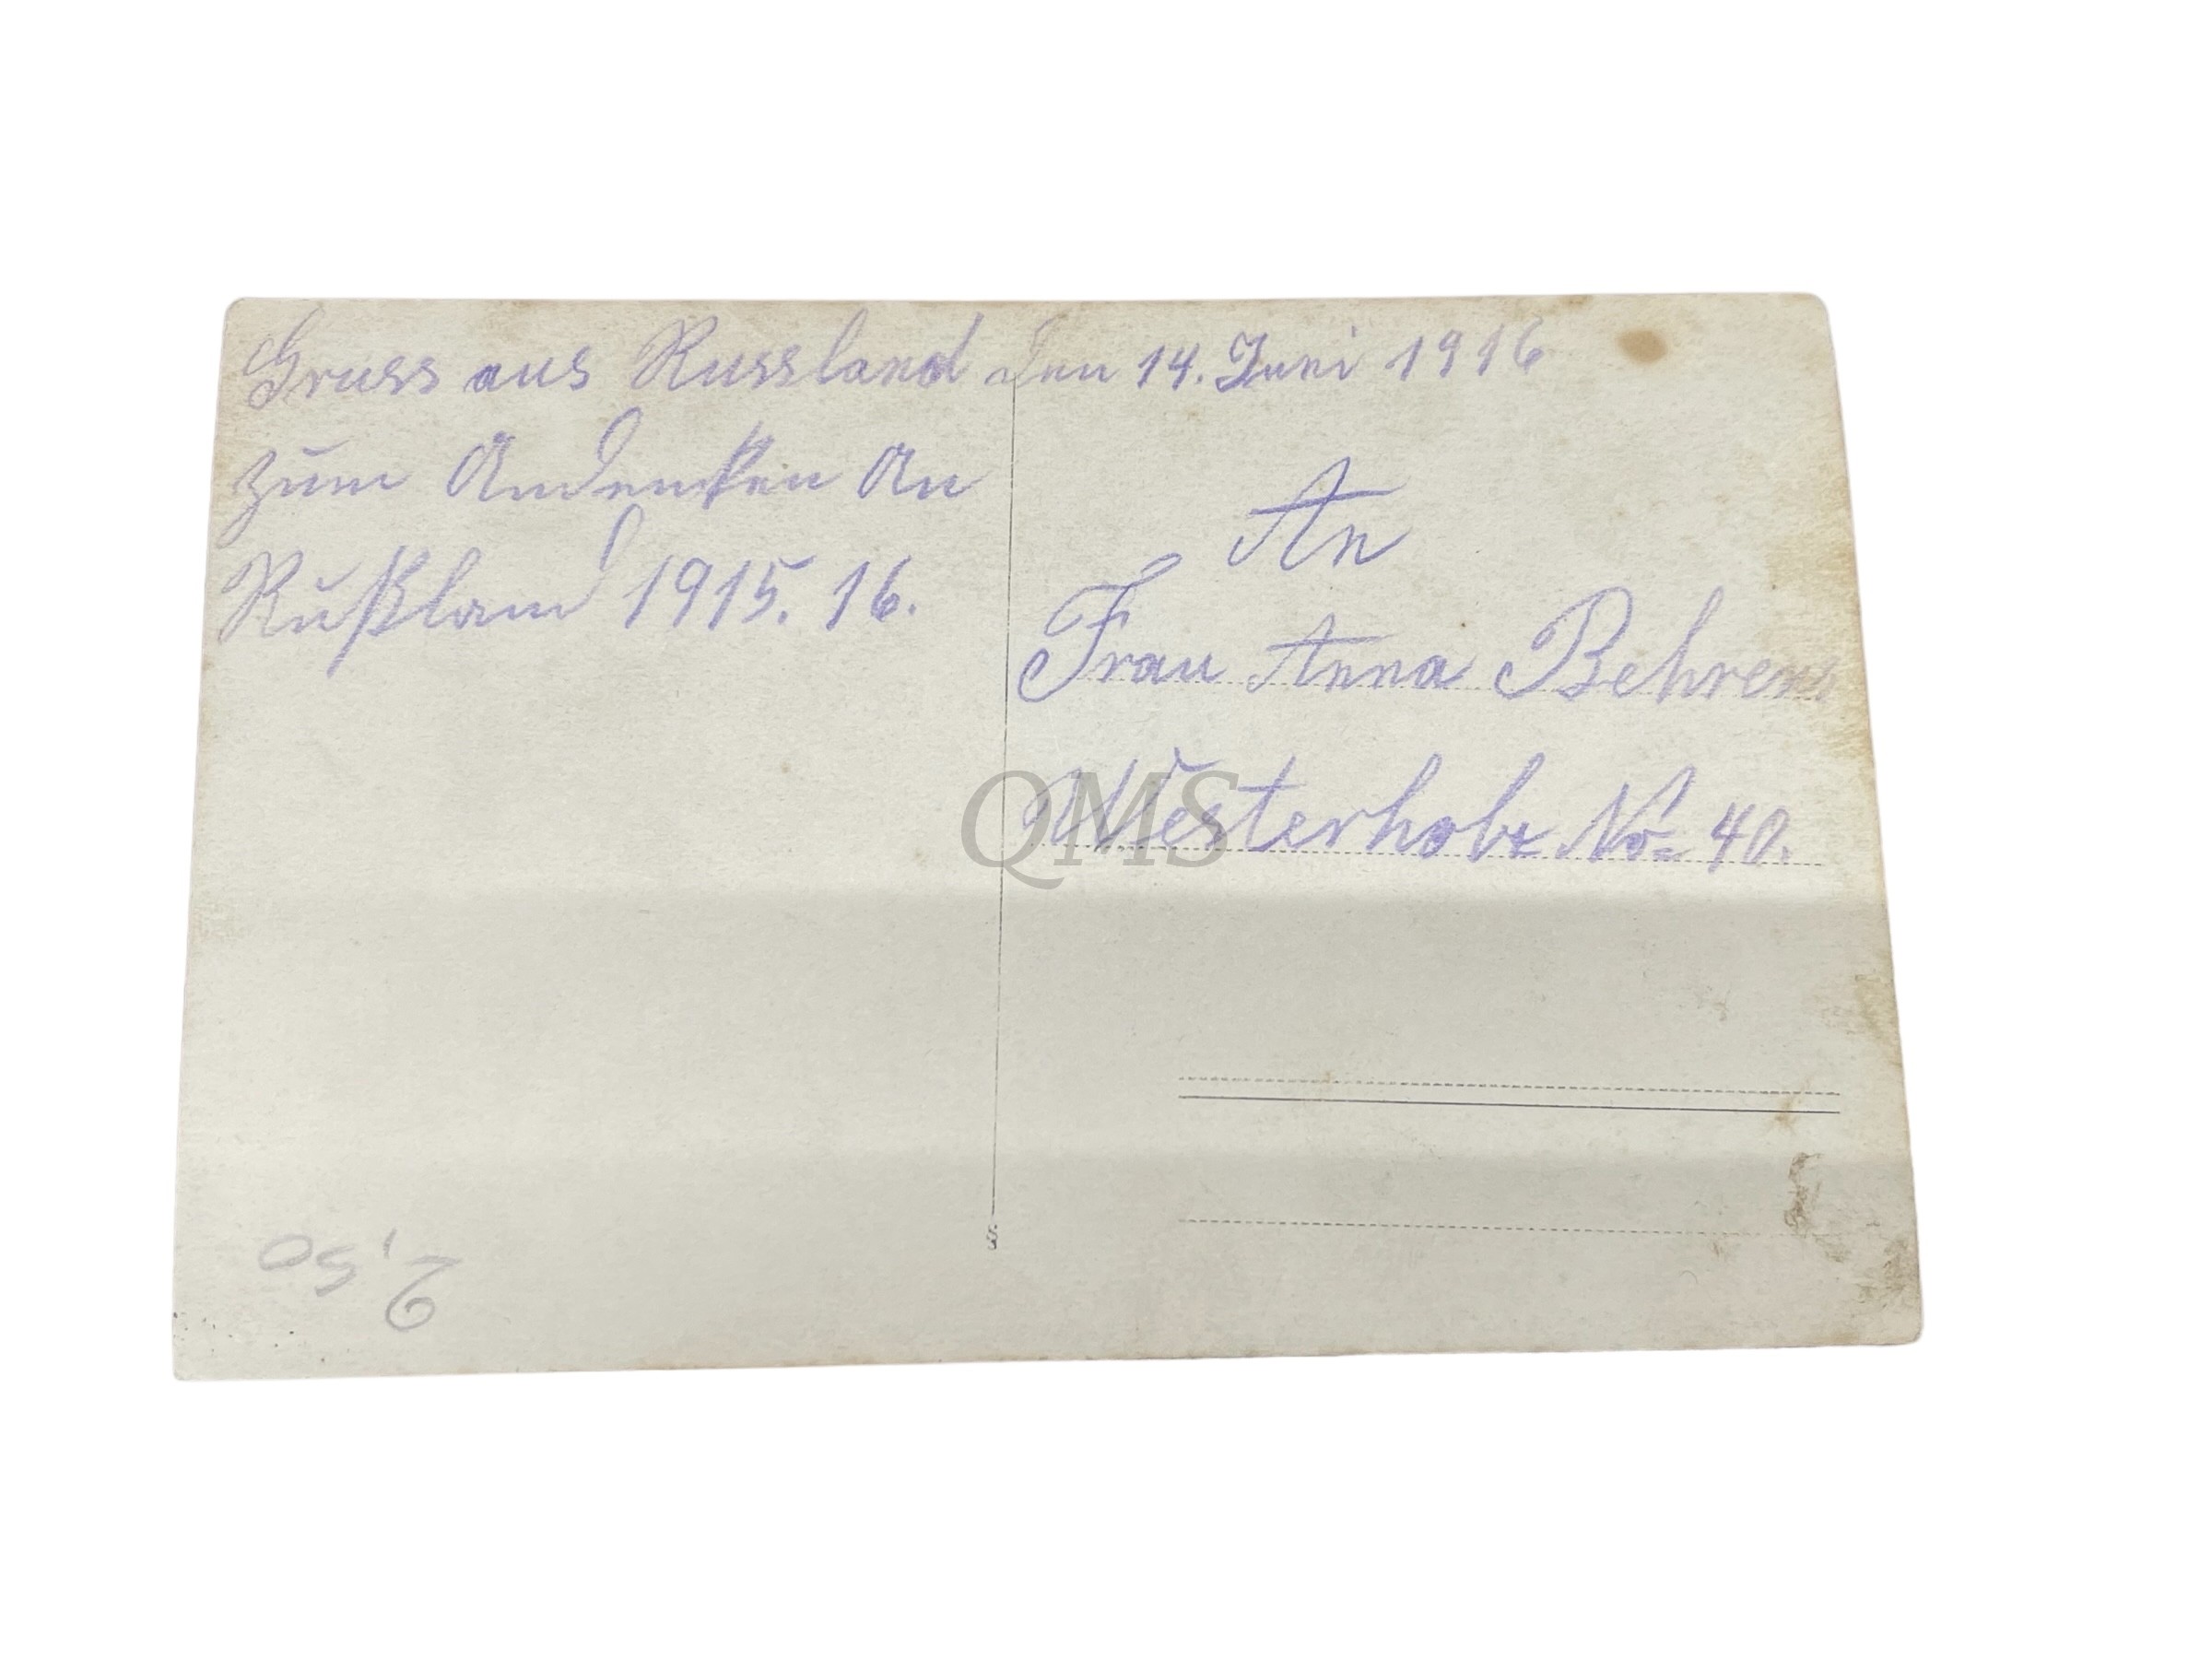 Gruss aus Russland den 14. Juni 1916
zum Andenken An
Rußland 1915. 16.
An
Frau Anna Behrens
Westerholz No 40.
QMS
2,50